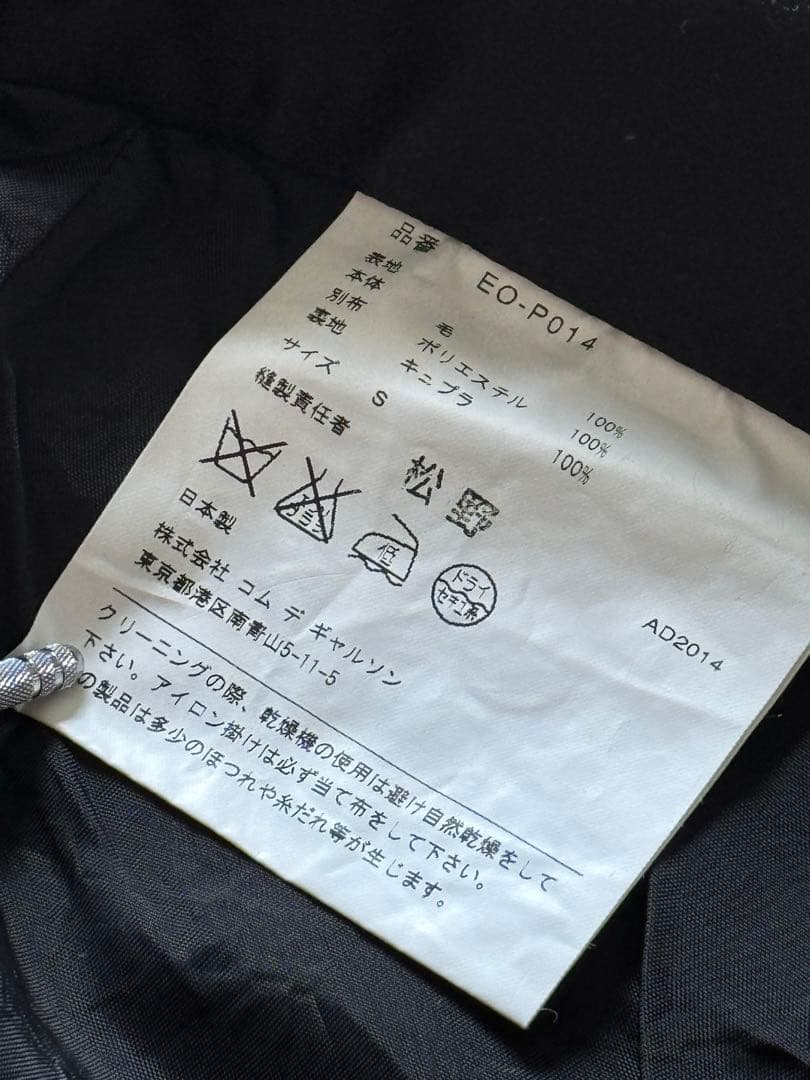 品番 EO-P014
表地
本体 毛 100%
別布 ポリエステル 100%
裏地 キュプラ 100%
サイズ S
縫製責任者 松野
エンソサラシ
低
ドライ
セキユ系
日本製
株式会社 コム デ ギャルソン
東京都港区南青山5-11-5
AD2014
クリーニングの際、乾燥機の使用は避け自然乾燥をして
下さい。アイロン掛けは必ず当て布をして下さい。
の製品は多少のほつれや糸だれ等が生じます。